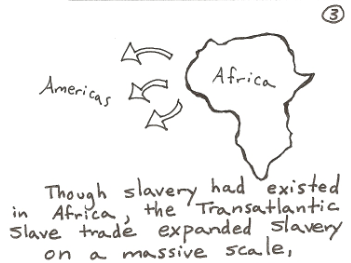 3
Africa
Americas
Though slavery had existed
in Africa, the Transatlantic
slave trade expanded slavery
on a massive scale,